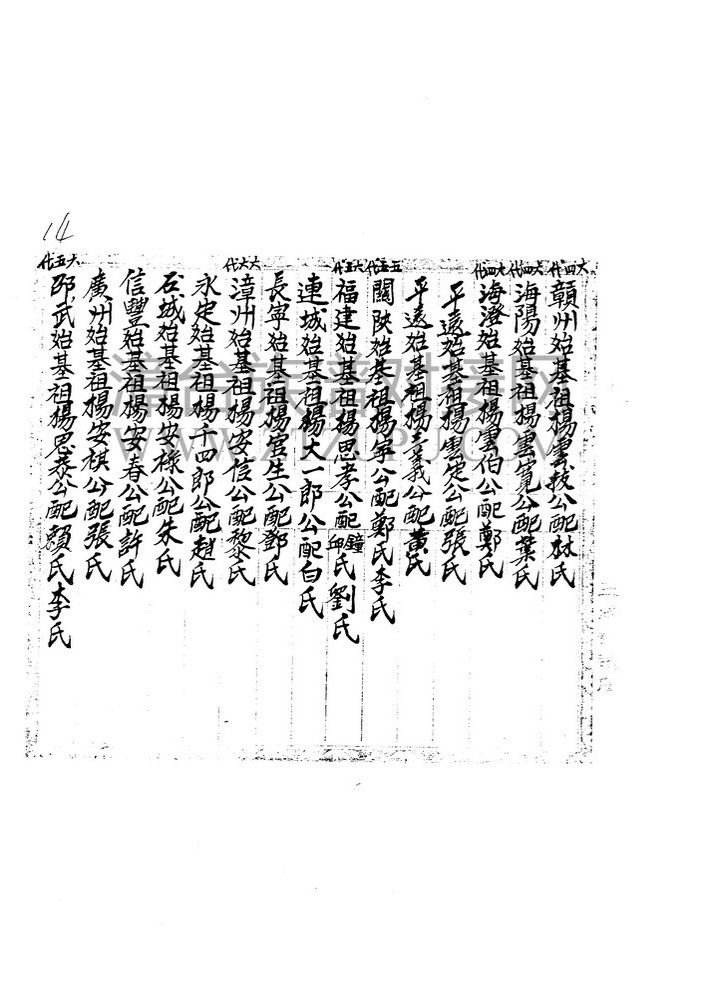 14
六四代
贛州始基祖楊雲拔公配林氏
六四代
海陽始基祖楊雲寬公配葉氏
六四代
海澄始基祖楊雲伯公配鄭氏
平遠始基祖楊雲定公配張氏
平遠始基祖楊三義公配黃氏
五五代
關陝始基祖楊寧公配鄭氏李氏
六五代
福建始基祖楊思孝公配鐘邱氏劉氏
連城始基祖楊大一郎公配白氏
長寧始基祖楊官生公配鄧氏
六六代
漳州始基祖楊安信公配黎氏
永定始基祖楊千四郎公配趙氏
石城始基祖楊安祿公配朱氏
信豐始基祖楊安春公配許氏
廣州始基祖楊安祺公配張氏
六五代
邵武始基祖楊思泰公配賴氏李氏
漳台族谱对接网
WWW.ZTZUPU.COM